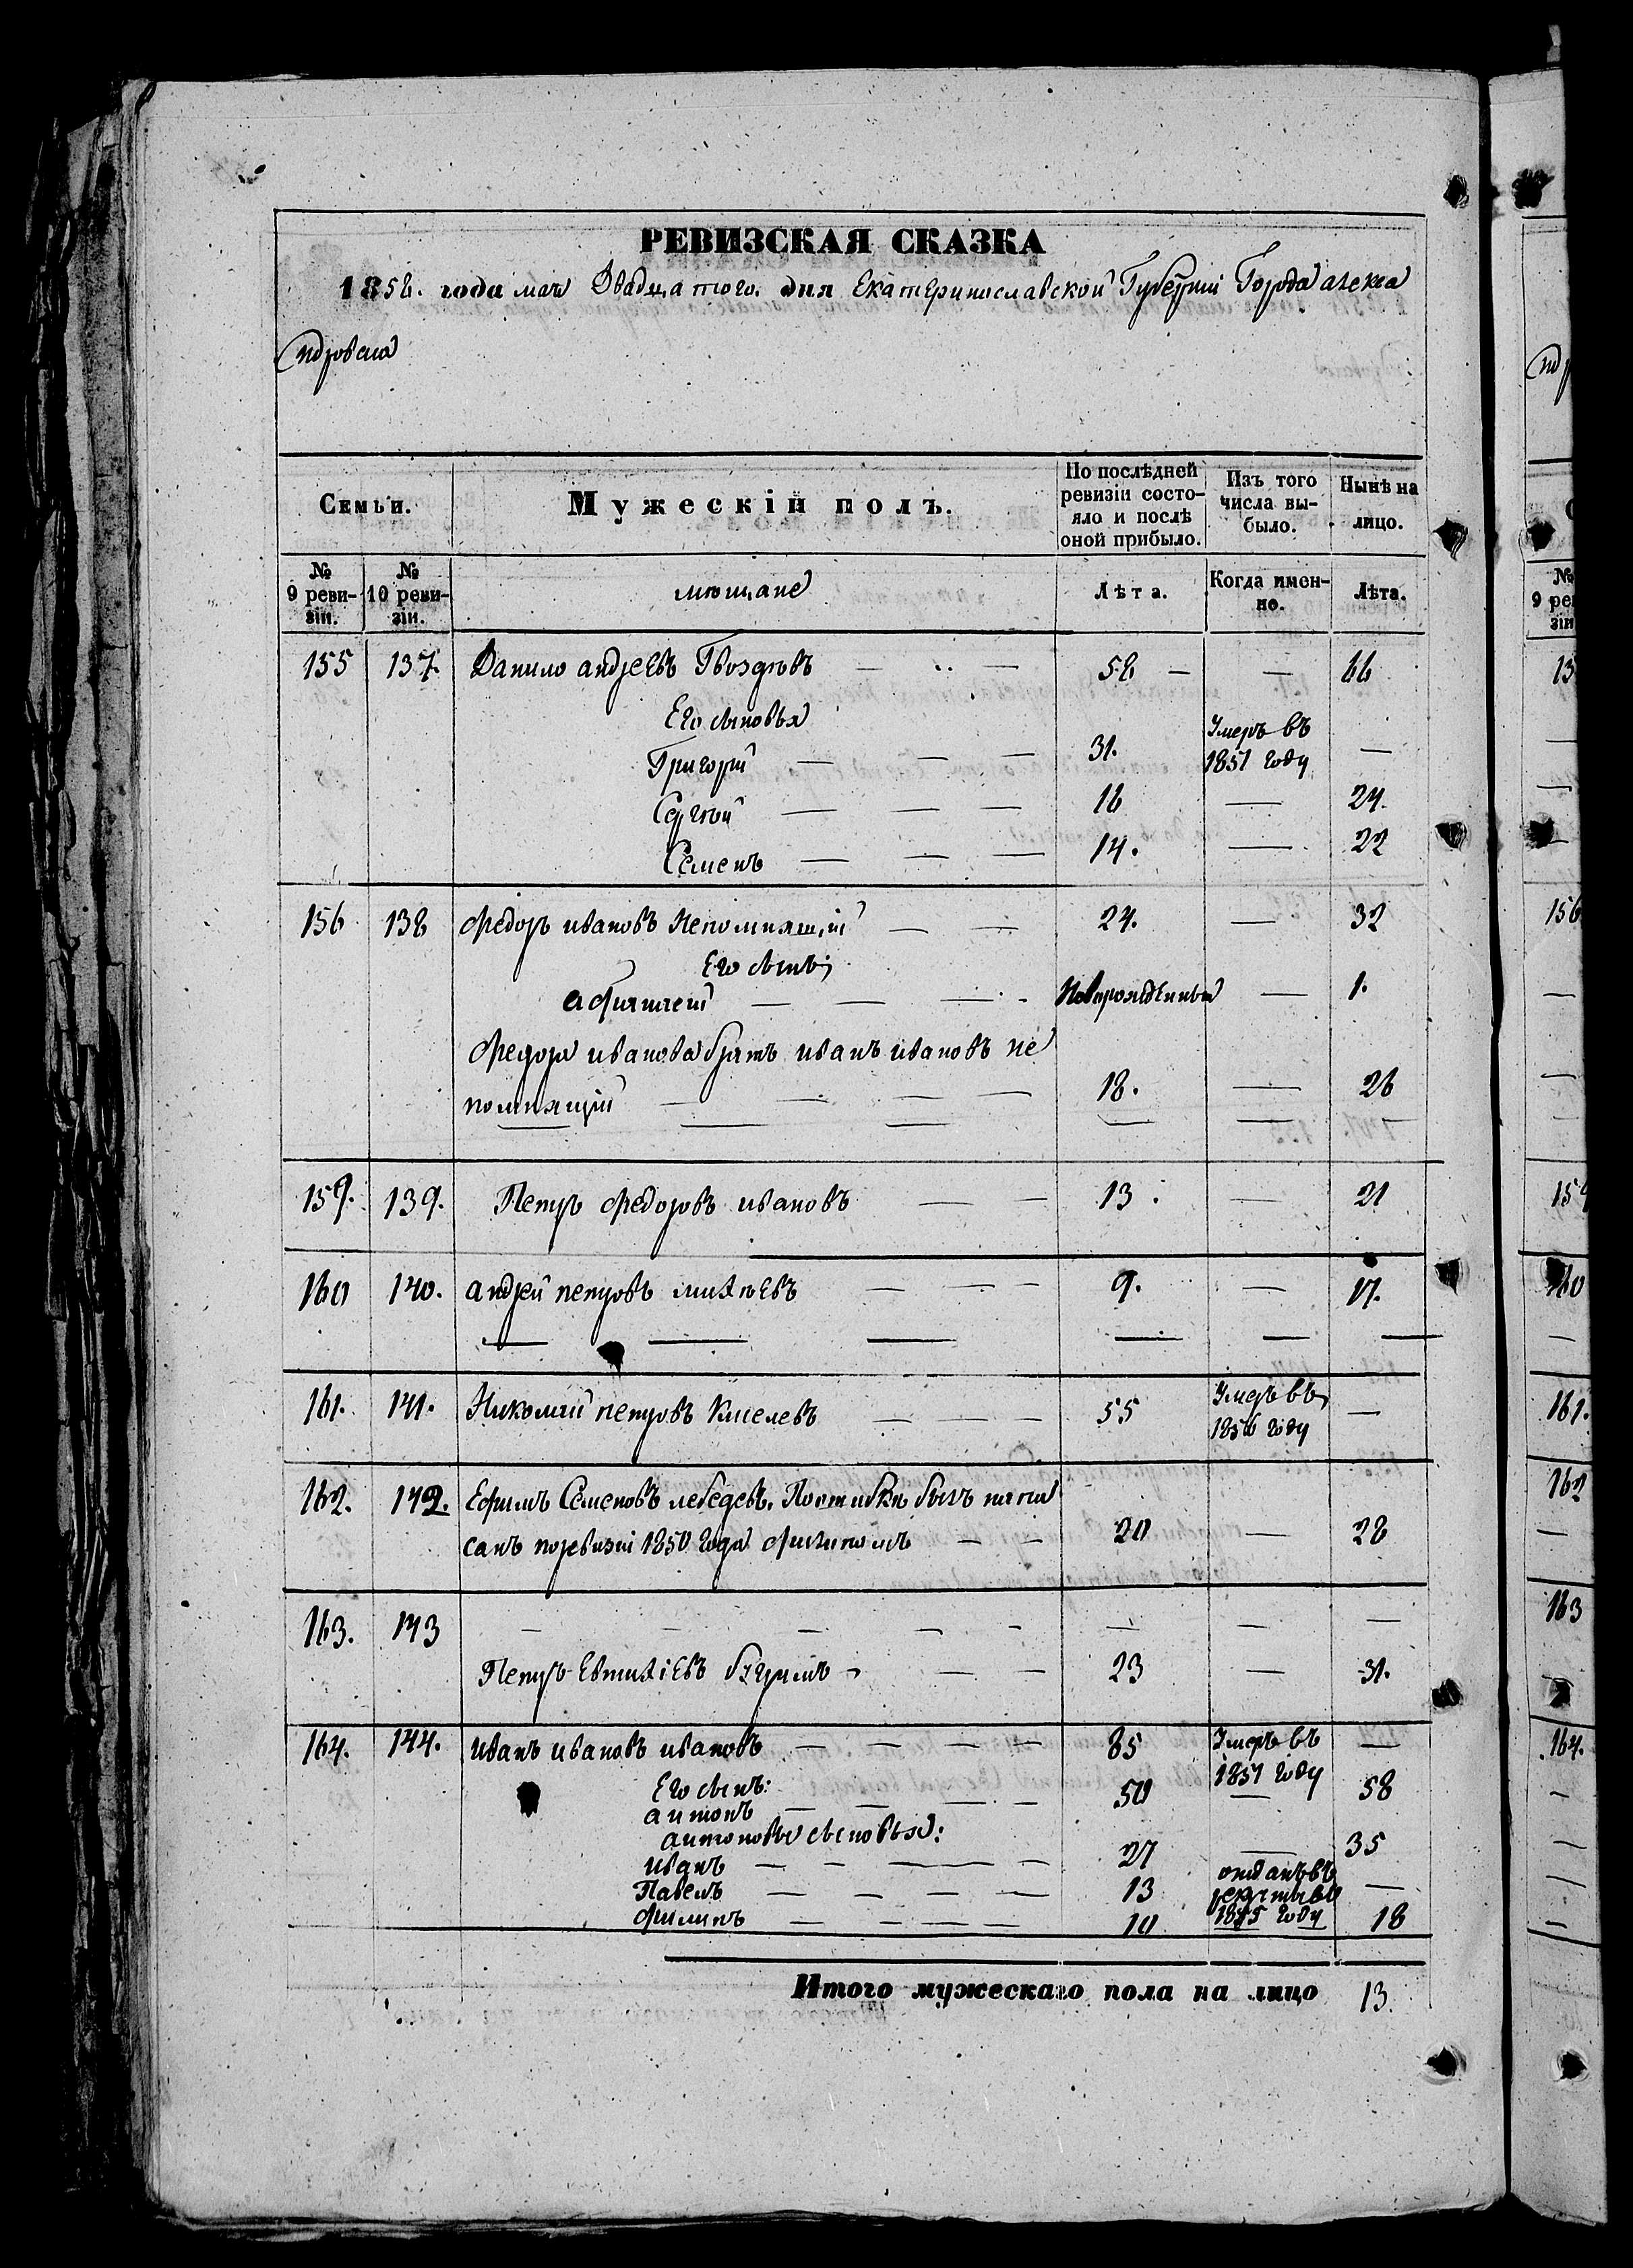 РЕВИЗСКАЯ СКАЗКА
1858. года мая Двадцатого. дня Екатеринославской Губерніи Города алекса
ндровска
Семьи.
Мужескій полъ.
По послѣдней ревизіи состо-яло и послѣ оной прибыло.
Изъ того числа вы-было.
Нынѣ на лицо.
№ 9 реви-зіи.
№ 10 реви-зіи.
мѣщане
Лѣта.
Когда имен-но.
Лѣта.
155 137. Данило андреевъ Гвоздѣвъ 58 — — 66
Его сыновья
Григорій — — — 31. Умеръ въ 1851 году —
Сергѣй — — — 16 — 24.
Семенъ — — — 14. — 22
156 138 Федоръ ивановъ Непомнящій — — 24. — 32
Его сынъ;
— — — Новорожденный — 1.
Федора иванова братъ иванъ ивановъ не
помнящій — — — — 18. — 26
159. 139. Петръ Федоровъ ивановъ — — 13. — 21
160 140. андрей петровъ михѣевъ — — — 9. — 17.
161. 141. Николай петровъ Киселевъ — — — 55 Умеръ въ 1856 году —
162. 142. Ефимъ Семеновъ лебедевъ. По ошибкѣ былъ напи
санъ поревизіи 1850 года Филипомъ — — 20 — 28
163. 143 — — — — — — — —
Петръ Евтихіевъ — — 23 — 31.
164. 144. иванъ ивановъ ивановъ — — — — 85 Умеръ въ 1851 году —
Его сынъ:
антонъ — — — — 50 — 58
антоновы сыновья:
иванъ — — — — 27 — 35
Павелъ — — — — 13 отданъ въ рекруты въ 1855 году —
Филипъ — — — — 10 18
Итого мужескаго пола на лицо 13.